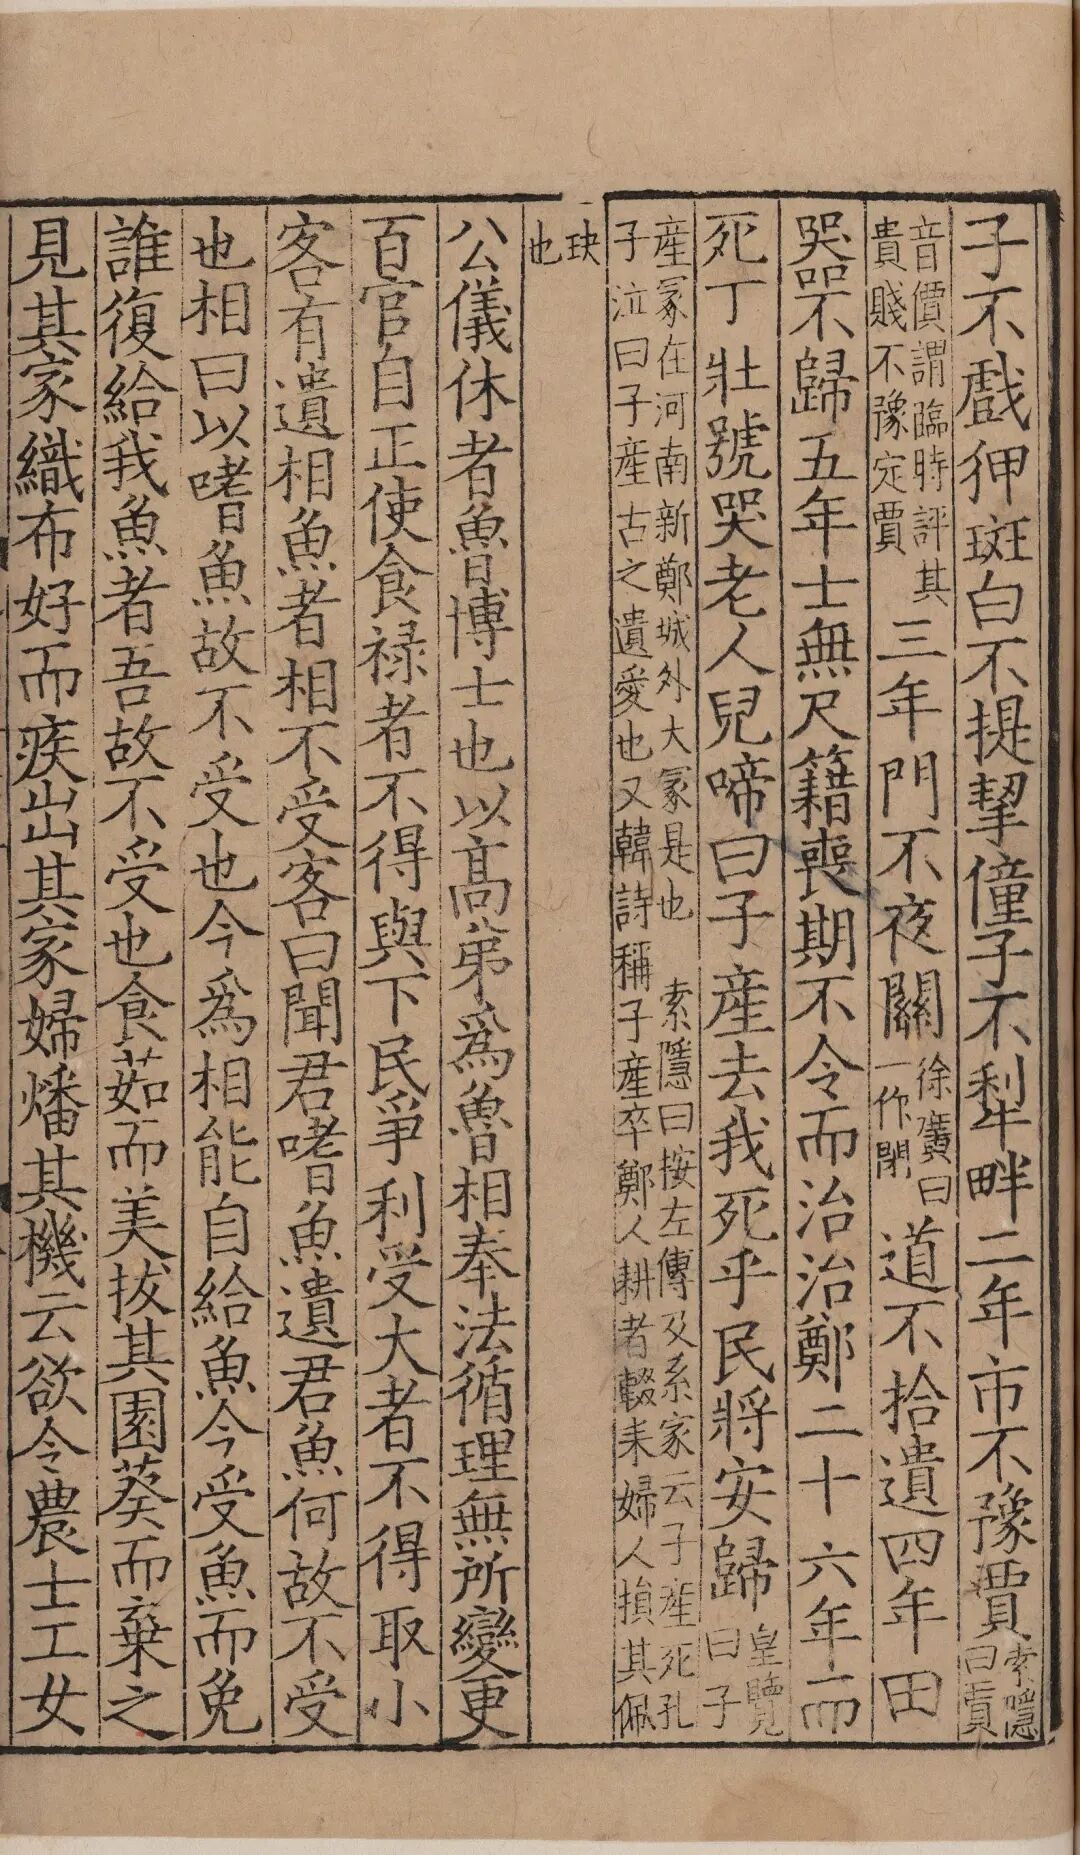 子不戲狎斑白不提挈僮子不犁畔二年市不豫賈索隱曰賈
音價謂臨時評其貴賤不豫定賈三年門不夜關徐廣曰一作閉道不拾遺四年田
器不歸五年士無尺籍喪期不令而治治鄭二十六年而
死丁壯號哭老人兒啼曰子産去我死乎民將安歸皇覽曰子
産冢在河南新鄭城外大冢是也 索隱曰按左傳及系家云子産死孔
子泣曰子産古之遺愛也又韓詩稱子産卒鄭人耕者輟耒婦人損其佩
玦也
公儀休者魯博士也以高弟爲魯相奉法循理無所變更
百官自正使食禄者不得與下民爭利受大者不得取小
客有遺相魚者相不受客曰聞君嗜魚遺君魚何故不受
也相曰以嗜魚故不受也今爲相能自給魚今受魚而免
誰復給我魚者吾故不受也食茹而美拔其園葵而棄之
見其家織布好而疾出其家婦燔其機云欲令農士工女